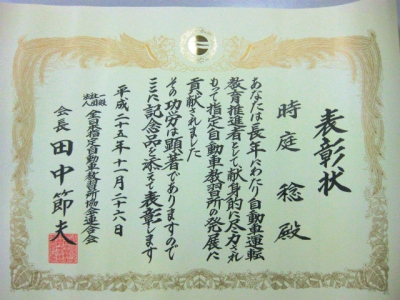 表彰状
時庭 稔 殿
あなたは長年にわたり自動車運転
教育推進者として献身的に尽力され
もって指定自動車教習所の発展に
貢献されました
その功労は顕著でありますので
ここに記念品を添えて表彰します
平成二十五年十一月二十六日
一般社団法人 全日本指定自動車教習所協会連合会
会長 田中節夫